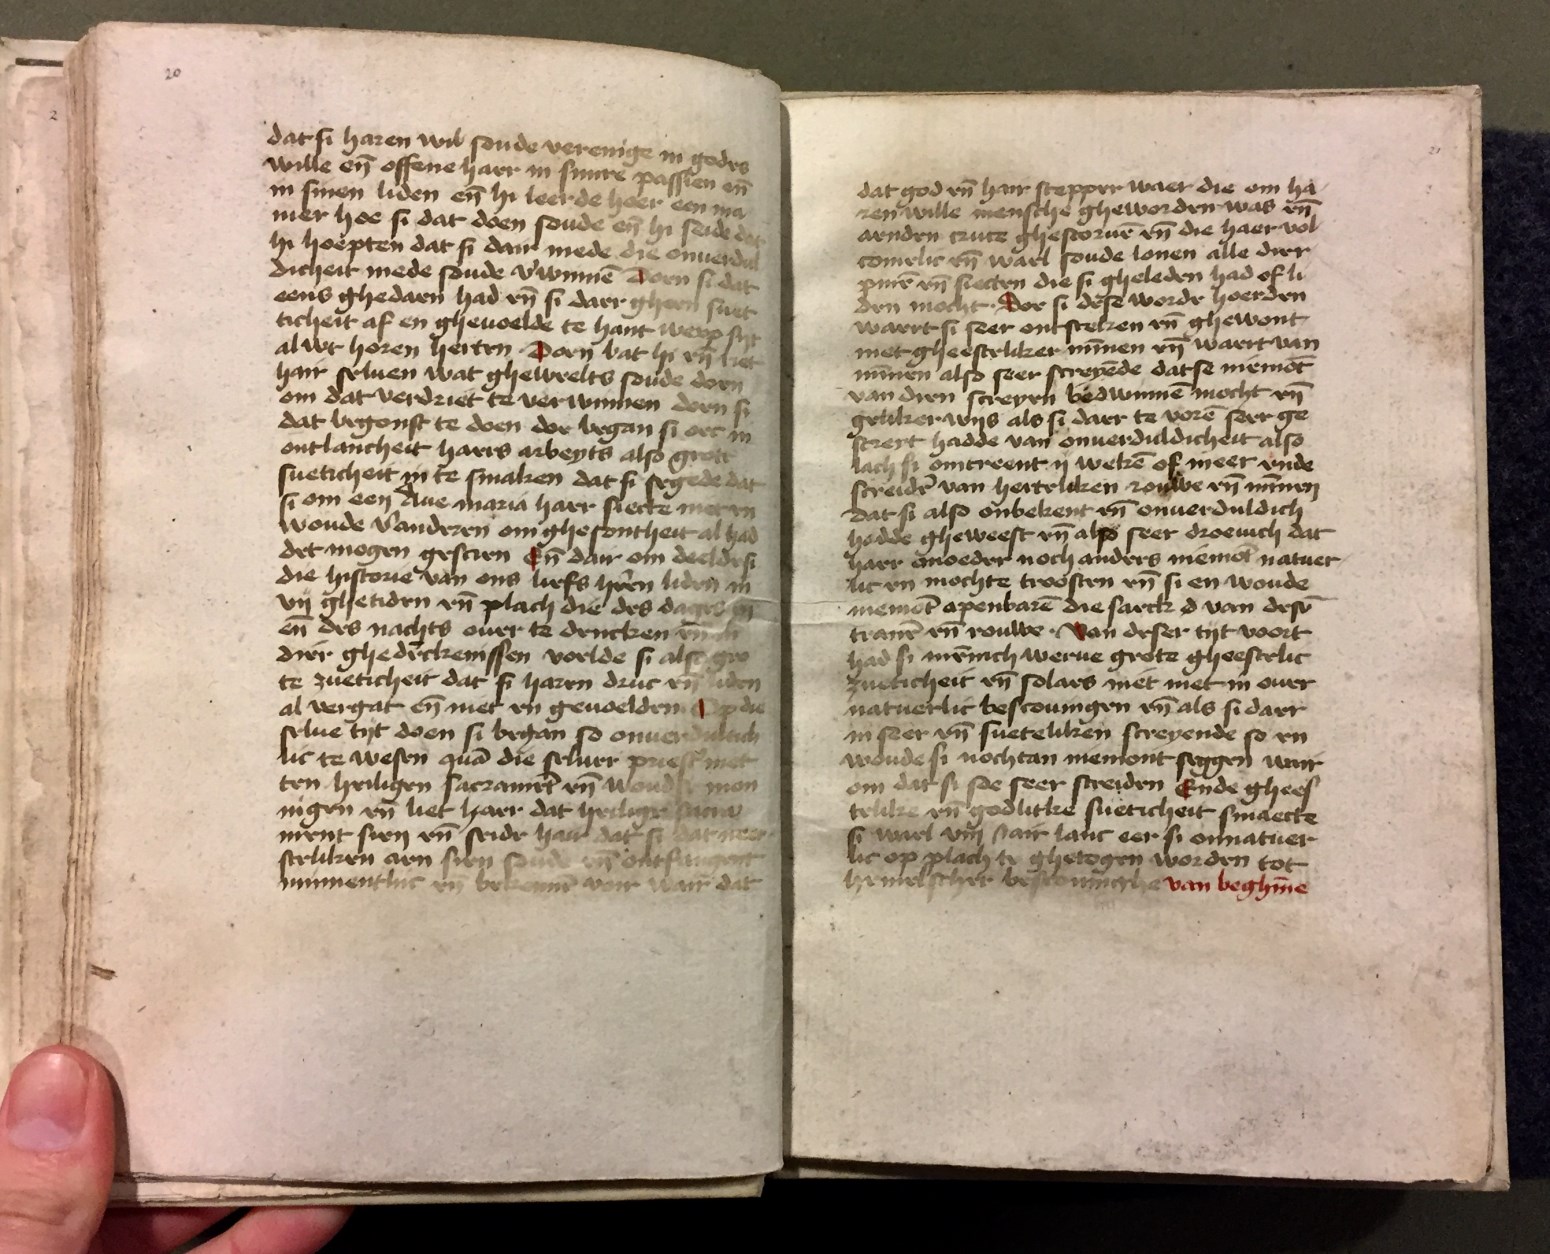 20
dat si haren wil soude verenige in godes
wille en̄ offene haer in sinre passien en̄
in sinen liden en̄ hi leerde heer een ma
nier hoe si dat doen soude en̄ hi seide dat
hi hoepten dat si dair mede die onverdul
dicheit mede soude v'winnē Doen si dat
eens ghedaen had en̄ si daer gheen suet
ticheit af en ghevoelde te hant werp sijt
al wt horen herten · Doen bat hi en̄ riet
hair seluen wat ghewelts soude doen
om dat verdriet te verwinnen doen si
dat begonst te doen doe began si oec in
ontlancheit haers arbeyts also grote
sueticheit in te smaken dat si segede dat
si om een Aue maria haer siecte niet en
woude v'anderen om ghesontheit al had
det mogen gescien En̄ dair om deelde si
die historie van ons liefs hēren liden in
vij ghetiden en̄ plach die des dages
en̄ des nachts ouer te dencken en̄ in
dier ghedēckenissen voelde si also gro
te zueticheit dat si haren druc en̄ liden
al vergat en̄ niet en gevoelden Op die
selue tijt doen si began so onuerduldich
lic te wesen quā die seluer priester met
ten heiligen sacramēt en̄ woudse mon
nigen en̄ liet haer dat heilige sacra
ment sien en̄ seide hair dat si dat neer
steliken aen sien soude en̄ ontfangent
minnentlic en̄ bekennē voir wair dat
21
dat god en̄ hair scepper waer die om ha
ren wille mensche gheworden was en̄
aenden cruce ghestoruē en̄ die haer vol
comelic en̄ wael soude lonen alle dier
pinē en̄ siecten die si gheleden had of li
den mocht · Doe si dese worde hoerden
waert si seer ontsteken en̄ ghewont
met gheesteliker mīnen en̄ waert van
mīnen also seer screyēde datse niemōt
van dien screyen bedwinnē mocht en̄
geliker wijs als si daer te vorē seer ge
screyt hadde van onuerduldicheit also
lach si omtreent ij wekē of meer ende
screidē van herteliken rouwe en̄ mīnen
dat si also onbekent en̄ onuerduldich
hadde gheweest en̄ also seer droeuich dat
haer moeder noch anders niemōt natuer
lic en mochte troosten en̄ si en woude
niemōt apenbarē die sake d van desē
tranē en̄ rouwe · Van deser tijt voort
had si mēnich werue grote gheestelic
zueticheit en̄ solaes met niet in ouer
natuerlic bescouingen en̄ als si daer
in seer en̄ sueteliken screyende so en
woude si nochtan niemont seggen wair
om dat si soe seer screiden Ende ghees
telike en̄ godlitke sueticheit smaecte
si wael viij iair lanc eer si onnatuer
lic op plach te ghetogen worden tot
hemelscher bescouinghe van beghīne
2